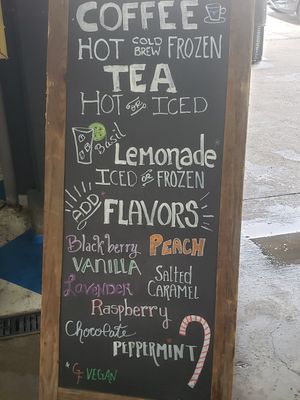 COFFEE
HOT COLD BREW FROZEN
TEA
HOT OR ICED
Basil
Lemonade
ICED OR FROZEN
ADD FLAVORS
Blackberry PEACH
VANILLA
Lavender Salted CARAMEL
Raspberry
Chocolate
PEPPERMINT
& GF VEGAN